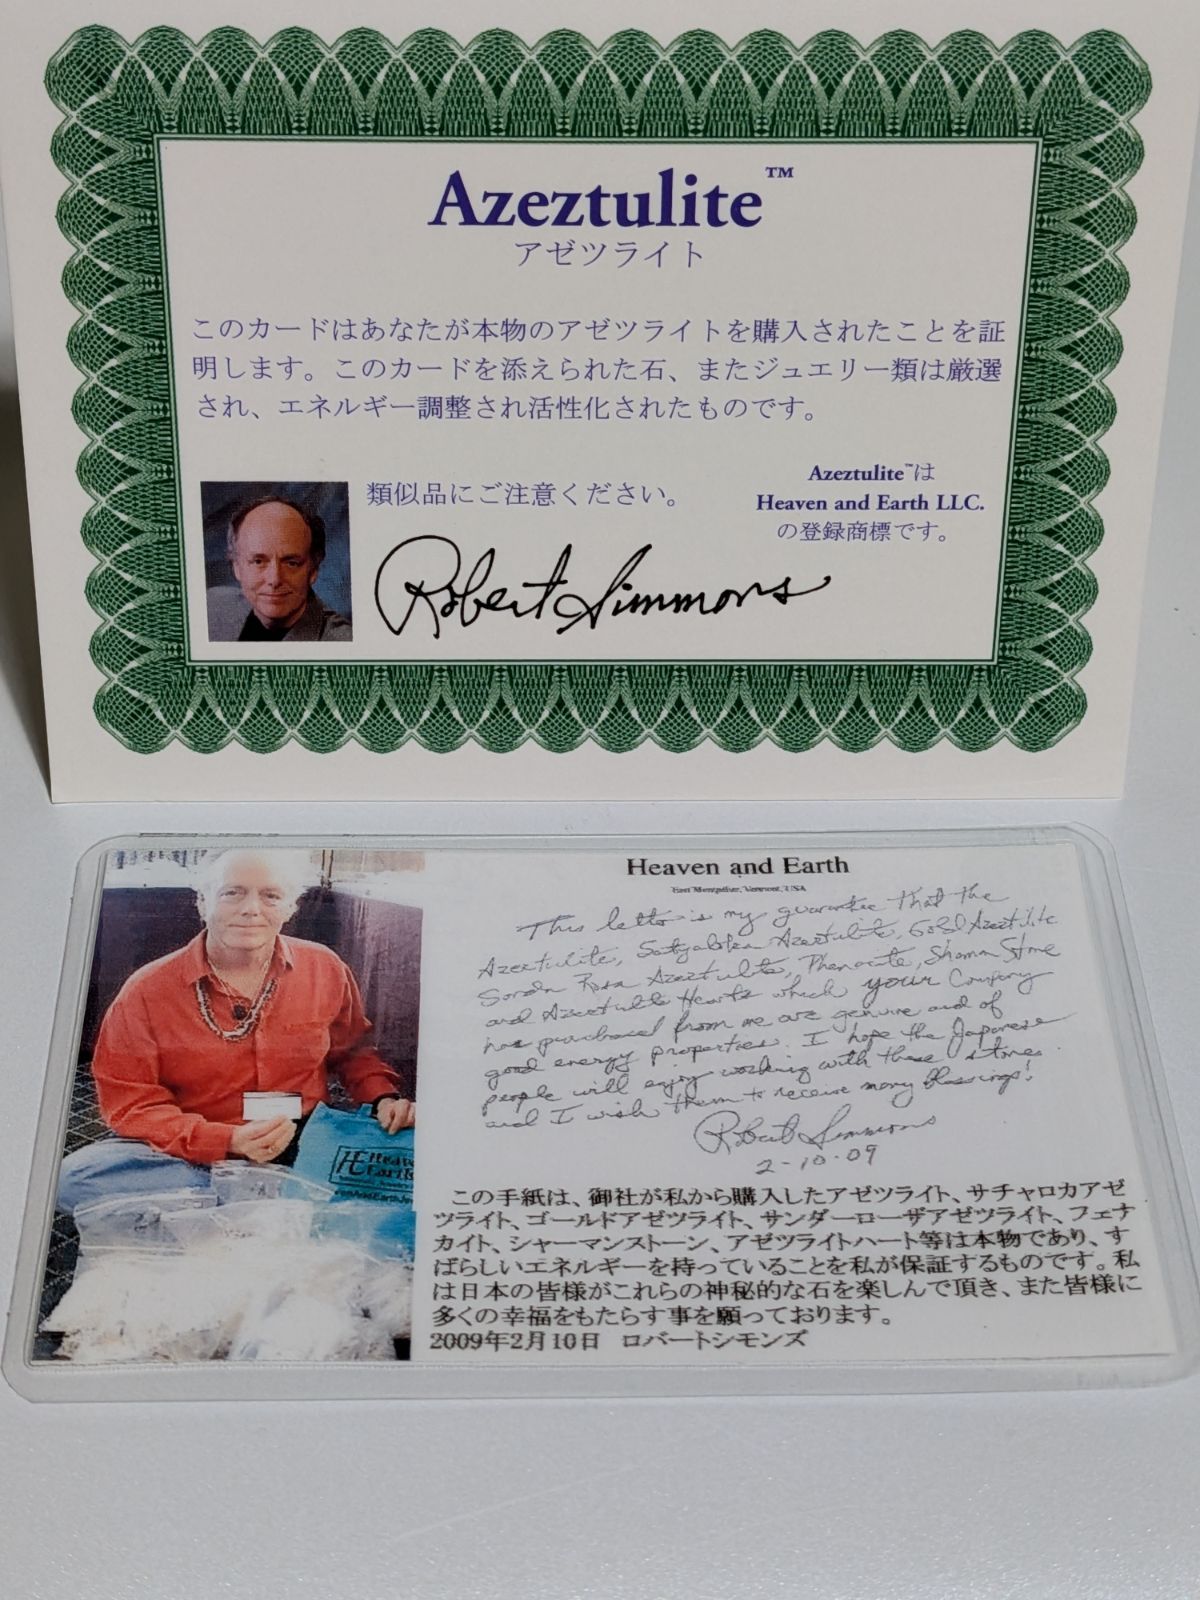 Azeztulite™
アゼツライト
このカードはあなたが本物のアゼツライトを購入されたことを証
明します。このカードを添えられた石、またジュエリー類は厳選
され、エネルギー調整され活性化されたものです。
類似品にご注意ください。
Azeztulite™は
Heaven and Earth LLC.
の登録商標です。
Robert Simmons
Heaven and Earth
East Montpelier, Vermont, USA
This letter is my guarantee that the
Azeztulite, Satyaloka Azeztulite, Gold Azeztulite
Sanda Rosa Azeztulite, Phenacite, Shaman Stone
and Azeztulite Hearts which your Company
has purchased from me are genuine and of
good energy properties. I hope the Japanese
people will enjoy working with these stones
and I wish them to receive many blessings!
Robert Simmons
2-10-09
Heaven
Earth
この手紙は、御社が私から購入したアゼツライト、サチャロカアゼ
ツライト、ゴールドアゼツライト、サンダーローザアゼツライト、フェナ
カイト、シャーマンストーン、アゼツライトハート等は本物であり、す
ばらしいエネルギーを持っていることを私が保証するものです。私
は日本の皆様がこれらの神秘的な石を楽しんで頂き、また皆様に
多くの幸福をもたらす事を願っております。
2009年2月10日 ロバートシモンズ